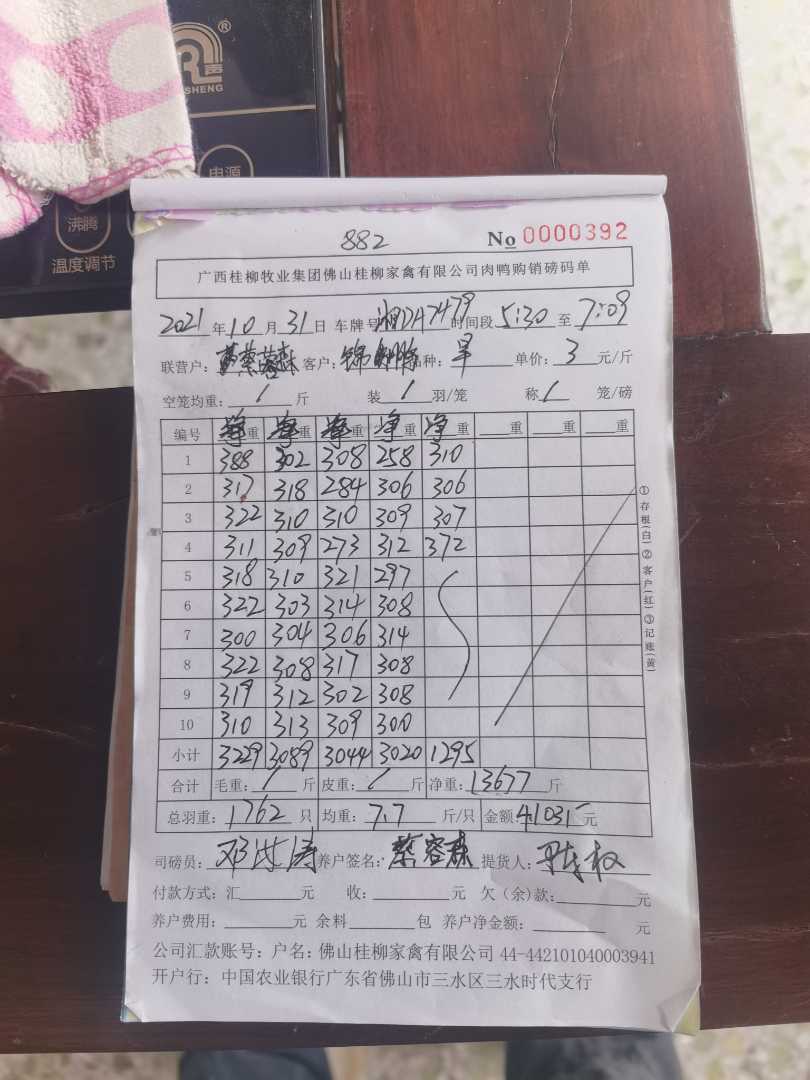 R®
声
SHENG
电源
沸腾
温度调节
882
No 0000392
广西桂柳牧业集团佛山桂柳家禽有限公司肉鸭购销磅码单
2021年10月31日 车牌号湘DA7479时间段5:30至7:09
联营户: 蔡蓉森 客户: 锦 品种: 旱 单价: 3 元/斤
空笼均重: / 斤 装 / 羽/笼 称 / 笼/磅
编号 净重 净重 净重 净重 净重 重 重 重
1 388 302 308 258 310
2 317 318 284 306 306
3 322 310 310 309 307
4 311 309 273 312 372
5 318 310 321 297
6 322 303 314 308
7 300 304 306 314
8 322 308 317 308
9 319 312 302 308
10 310 313 309 300
小计 3229 3089 3044 3020 1295
合计 毛重: / 斤 皮重: / 斤 净重: 13677 斤
总羽重: 1762 只 均重: 7.7 斤/只 金额: 41031 元
司磅员: 邓 涛 养户签名: 蔡容森 提货人: 权
付款方式: 汇 元 收: 元 欠(余)款: 元
养户费用: 元 余料 包 养户净金额: 元
公司汇款账号: 户名: 佛山桂柳家禽有限公司 44-442101040003941
开户行: 中国农业银行广东省佛山市三水区三水时代支行
①存根(白)②客户(红)③记账(黄)